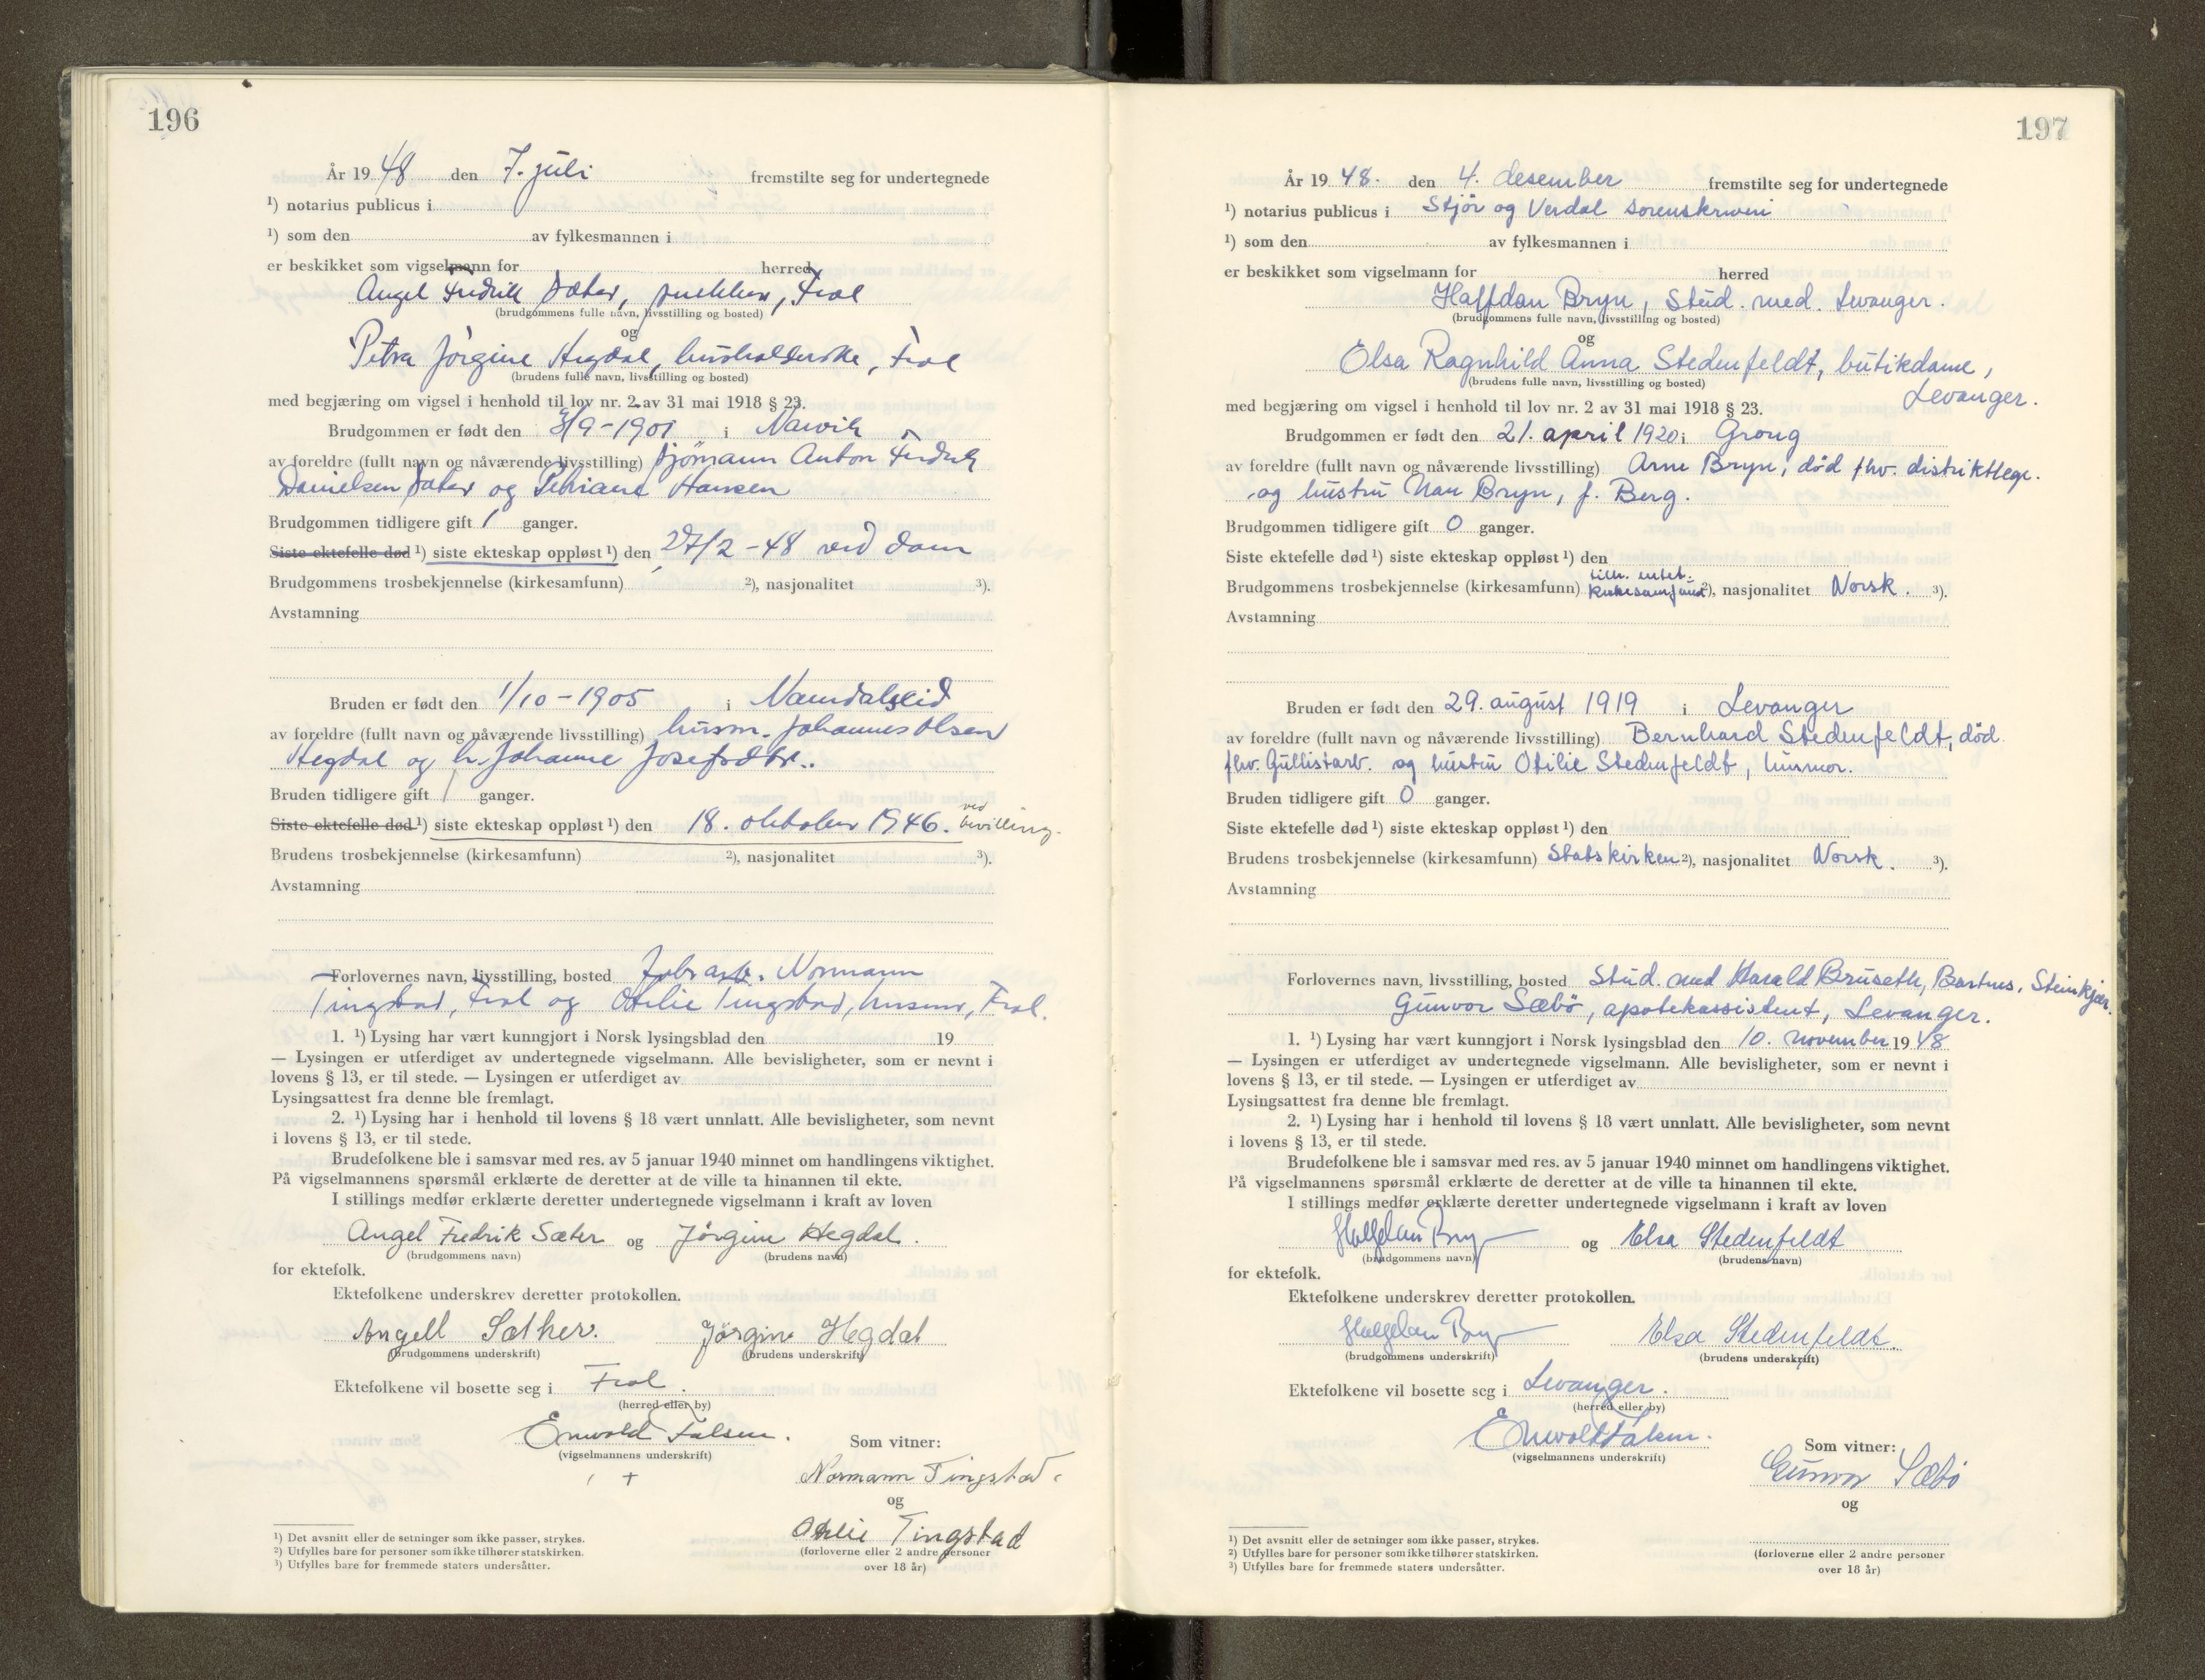 196
År 19 48 den 7. juli fremstilte seg for undertegnede
¹) notarius publicus i
¹) som den av fylkesmannen i
er beskikket som vigselmann for herred
Angel Fredrik Sæter, snekker, Frol
(brudgommens fulle navn, livsstilling og bosted)
og
Petra Jørgine Hegdal, husholderske, Frol
(brudens fulle navn, livsstilling og bosted)
med begjæring om vigsel i henhold til lov nr. 2 av 31 mai 1918 § 23.
Brudgommen er født den 3/9-1901 i Narvik
av foreldre (fullt navn og nåværende livsstilling) sjømann Anton Fredrik
Danielsen Sæter og Hansen
Brudgommen tidligere gift 1 ganger.
Siste ektefelle død ¹) siste ekteskap oppløst ¹) den 27/2-48 ved dom
Brudgommens trosbekjennelse (kirkesamfunn) ²), nasjonalitet ³).
Avstamning
Bruden er født den 1/10-1905 i Namdalseid
av foreldre (fullt navn og nåværende livsstilling) husm. Johannes Olsen
Hegdal og h. Johanne Josefsdtr.
Bruden tidligere gift 1 ganger.
Siste ektefelle død ¹) siste ekteskap oppløst ¹) den 18. oktober 1946. ved bevilling.
Brudens trosbekjennelse (kirkesamfunn) ²), nasjonalitet ³).
Avstamning
Forlovernes navn, livsstilling, bosted Fabr.arb. Normann
Tingstad, Frol og Otelie Tingstad, husmor, Frol.
1. ¹) Lysing har vært kunngjort i Norsk lysingsblad den 19
— Lysingen er utferdiget av undertegnede vigselmann. Alle bevisligheter, som er nevnt i
lovens § 13, er til stede. — Lysingen er utferdiget av
Lysingsattest fra denne ble fremlagt.
2. ¹) Lysing har i henhold til lovens § 18 vært unnlatt. Alle bevisligheter, som nevnt
i lovens § 13, er til stede.
Brudefolkene ble i samsvar med res. av 5 januar 1940 minnet om handlingens viktighet.
På vigselmannens spørsmål erklærte de deretter at de ville ta hinannen til ekte.
I stillings medfør erklærte deretter undertegnede vigselmann i kraft av loven
Angel Fredrik Sæter og Jørgine Hegdal.
(brudgommens navn) (brudens navn)
for ektefolk.
Ektefolkene underskrev deretter protokollen.
Angell Sæther. Jørgine Hegdal
(brudgommens underskrift) (brudens underskrift)
Ektefolkene vil bosette seg i Frol.
(herred eller by)
Enwold Falsen.
(vigselmannens underskrift)
Som vitner:
Normann Tingstad.
og
Otelie Tingstad
(forloverne eller 2 andre personer
over 18 år)
¹) Det avsnitt eller de setninger som ikke passer, strykes.
²) Utfylles bare for personer som ikke tilhører statskirken.
³) Utfylles bare for fremmede staters undersåtter.
197
År 19 48. den 4. desember fremstilte seg for undertegnede
¹) notarius publicus i Stjør og Verdal sorenskriveri
¹) som den av fylkesmannen i
er beskikket som vigselmann for herred
Halfdan Bryn, Stud. med. Levanger.
(brudgommens fulle navn, livsstilling og bosted)
og
Elsa Ragnhild Anna Stedenfeldt, butikdame,
Levanger.
(brudens fulle navn, livsstilling og bosted)
med begjæring om vigsel i henhold til lov nr. 2 av 31 mai 1918 § 23.
Brudgommen er født den 21. april 1920 i Grong
av foreldre (fullt navn og nåværende livsstilling) Arne Bryn, død fhv. distriktlege.
og hustru Nan Bryn, f. Berg.
Brudgommen tidligere gift 0 ganger.
Siste ektefelle død ¹) siste ekteskap oppløst ¹) den
Brudgommens trosbekjennelse (kirkesamfunn) tilh. intet kirkesamfund ²), nasjonalitet Norsk. ³).
Avstamning
Bruden er født den 29. august 1919 i Levanger
av foreldre (fullt navn og nåværende livsstilling) Bernhard Stedenfeldt, død
fhv. Gullistarb. og hustru Otilie Stedenfeldt, husmor.
Bruden tidligere gift 0 ganger.
Siste ektefelle død ¹) siste ekteskap oppløst ¹) den
Brudens trosbekjennelse (kirkesamfunn) Statskirken ²), nasjonalitet Norsk. ³).
Avstamning
Forlovernes navn, livsstilling, bosted Stud. med Harald Bruseth, Bartnes, Steinkjær.
Gunvor Sæbø, apotekassistent, Levanger.
1. ¹) Lysing har vært kunngjort i Norsk lysingsblad den 10. november 19 48
— Lysingen er utferdiget av undertegnede vigselmann. Alle bevisligheter, som er nevnt i
lovens § 13, er til stede. — Lysingen er utferdiget av
Lysingsattest fra denne ble fremlagt.
2. ¹) Lysing har i henhold til lovens § 18 vært unnlatt. Alle bevisligheter, som nevnt
i lovens § 13, er til stede.
Brudefolkene ble i samsvar med res. av 5 januar 1940 minnet om handlingens viktighet.
På vigselmannens spørsmål erklærte de deretter at de ville ta hinannen til ekte.
I stillings medfør erklærte deretter undertegnede vigselmann i kraft av loven
Halfdan Bryn og Elsa Stedenfeldt
(brudgommens navn) (brudens navn)
for ektefolk.
Ektefolkene underskrev deretter protokollen.
Halfdan Bryn Elsa Stedenfeldt.
(brudgommens underskrift) (brudens underskrift)
Ektefolkene vil bosette seg i Levanger.
(herred eller by)
Enwold Falsen.
(vigselmannens underskrift)
Som vitner:
Gunvor Sæbø
og
(forloverne eller 2 andre personer
over 18 år)
¹) Det avsnitt eller de setninger som ikke passer, strykes.
²) Utfylles bare for personer som ikke tilhører statskirken.
³) Utfylles bare for fremmede staters undersåtter.